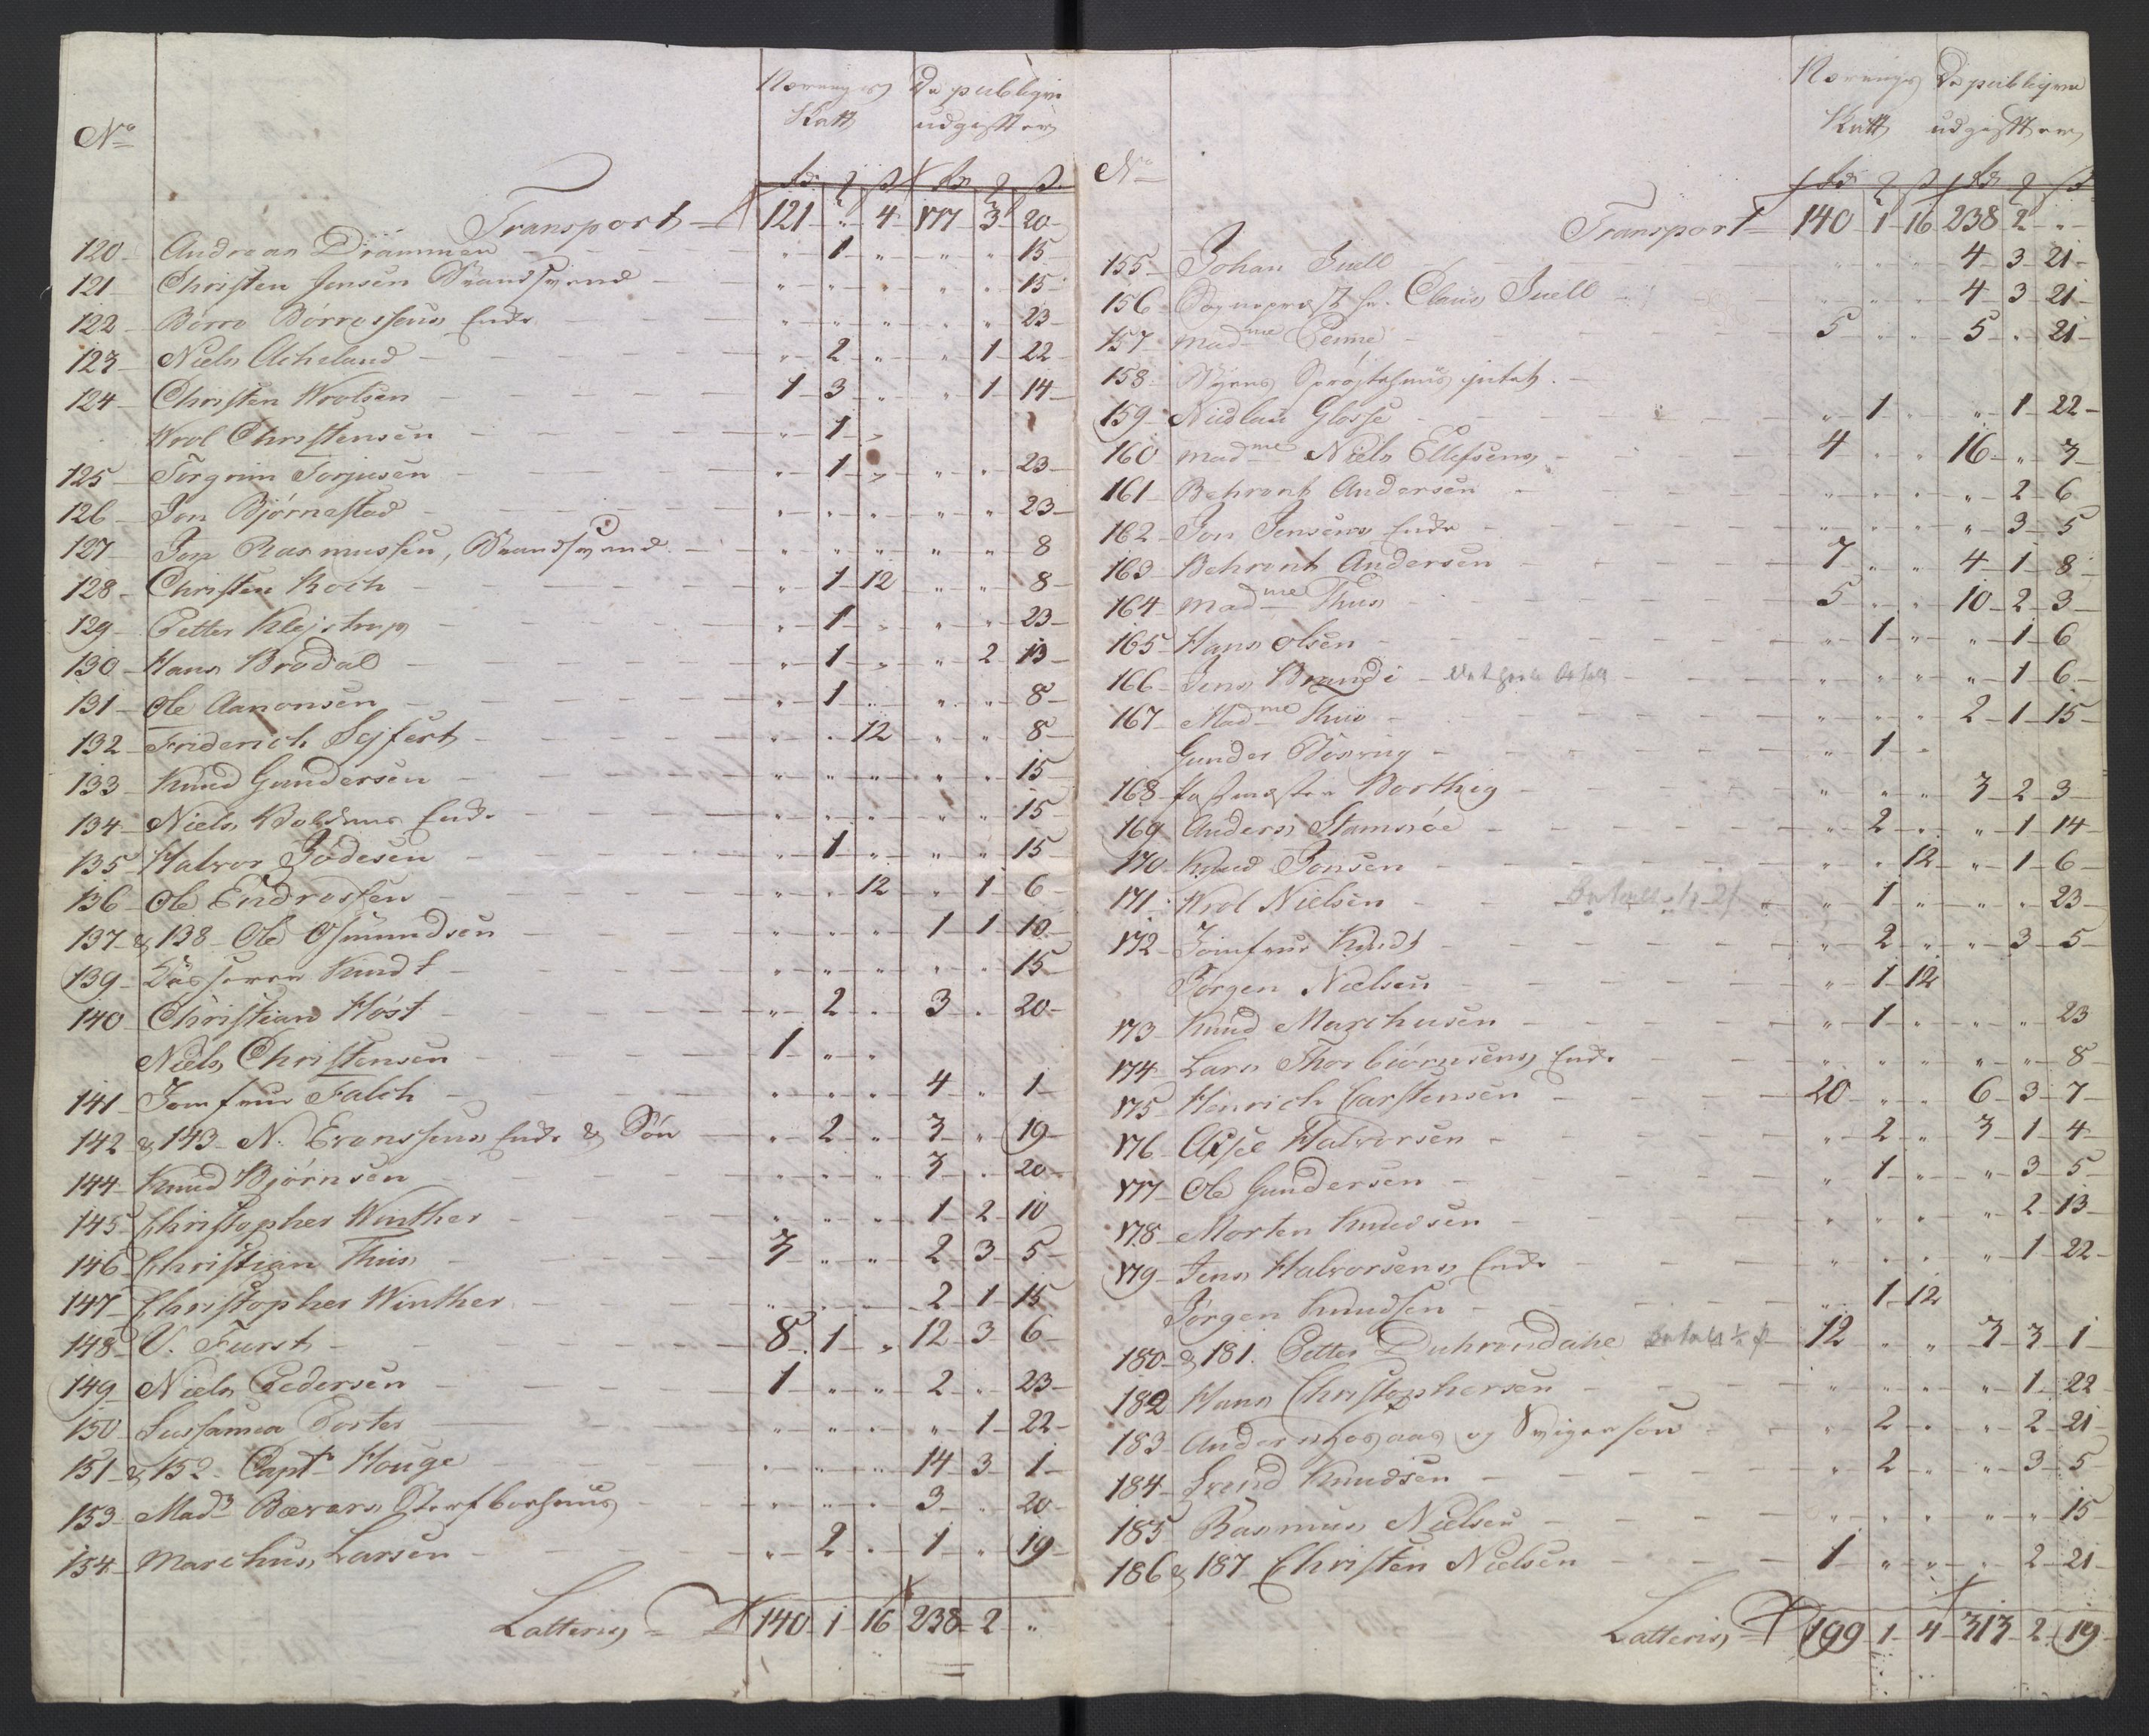 No
Nærings De publiqve
Skatt udgiffter
Transport 121 " 4 177 3 20
120 Andreas Drammen " 1 " " " 15
121 Christen Jensen Svendsvend " " " " " 15
122 Børre Børresens Enke " " " " " 23
123 Niels Acheland " 2 " " 1 22
124 Christen Wrolsen 1 3 " " 1 14
Wrol Christensen " 1 "
125 Torgrim Torjusen " 1 " " " 23
126 Jon Bjørnestad " " " " " 23
127 Jon Rasmussen, " " " " " 8
128 Christen Koch " 1 12 " " 8
129 Petter Klejstrup " 1 " " " 23
130 Hans Brodal " 1 " " 2 13
131 Ole Aanonsen " 1 " " " 8
132 Friderich Sejfert " " 12 " " 8
133 Knud Gundersen " " " " " 15
134 Niels Boldevins Enke " " " " " 15
135 Halvor Jodesen " 1 " " " 15
136 Ole Endresen " " 12 " 1 6
137 & 138 Ole Osmundsen " " " 1 1 10
139 Knudt " " " " " 15
140 Christian Høst " 2 " 3 " 20
Niels Christensen 1 " "
141 Jomfrue Falch " " " 4 " 1
142 & 143 N. Evensens Enke & Søn " 2 " 3 " 19
144 Knud Bjørnsen " " " 3 " 20
145 Christopher Winther " " " 1 2 10
146 Christian Thiis 3 " " 2 3 5
147 Christopher Winther " " " 2 1 15
148 U. Furst 8 1 " 12 3 6
149 Niels Pedersen 1 " " 2 " 23
150 Sussanna Porter " " " " 1 22
151 & 152 Capt: Houge " " " 14 3 1
153 Mad: Bævers " " " 3 " 20
154 Marchus Larsen " 2 " 1 " 19
Latteris 140 1 16 238 2 "
No
Nærings De publiqve
Skatt udgiffter
Transport 140 1 16 238 2 "
155 Johan Juell " " " 4 3 21
156 Sogneprest hr. Claus Juell " " " 4 3 21
157 Madme Penne 5 " " 5 " 21
158 Byens Sprøjtehuus intet.
159 Nicolaii Glosse " 1 " " 1 22
160 Madme Niels Ellefsens 4 " " 16 " 3
161 Behrent Andersen " " " " 2 6
162 Jon Jensens Enke " " " " 3 5
163 Behrent Andersen 7 " " 4 1 8
164 Madme Thiis 5 " " 10 2 3
165 Hans Olsen " 1 " " 1 6
166 Jens Brandi " " " " 1 6
167 Madme Thiis " " " 2 1 15
Gunder " 1 "
168 Postmester Barthig " " " 3 2 3
169 Anders Stamsøe " 2 " " 1 14
170 Knud Jonsen " " 12 " 1 6
171 Wrol Nielsen " 1 " " " 23
172 Jomfrue Knudt " 2 " " 3 5
Jørgen Nielsen " 1 12
173 Knud Marchusen " 1 " " " 23
174 Lars Thorbiørnsens Enke " " " " " 8
175 Henrich Carstensen 20 " " 6 3 7
176 Axsel Halvorsen " 2 " 3 1 4
177 Ole Gundersen " 1 " " 3 5
178 Morten Knudsen " " " " 2 13
179 Jens Halvorsens Enke " " " " 1 22
Jørgen Knudsen " 1 12
180 & 181. Petter Duhrendahl 12 " " 3 3 1
182 Hans Christophersen " " " " 1 22
183 Anders og Svigersøn " 2 " " 2 21
184 Svend Knudsen " 2 " " 3 5
185 Rasmus Nielsen " " " " " 15
186 & 187 Christen Nielsen 1 " " " 2 21
Latteris 199 1 4 313 2 19